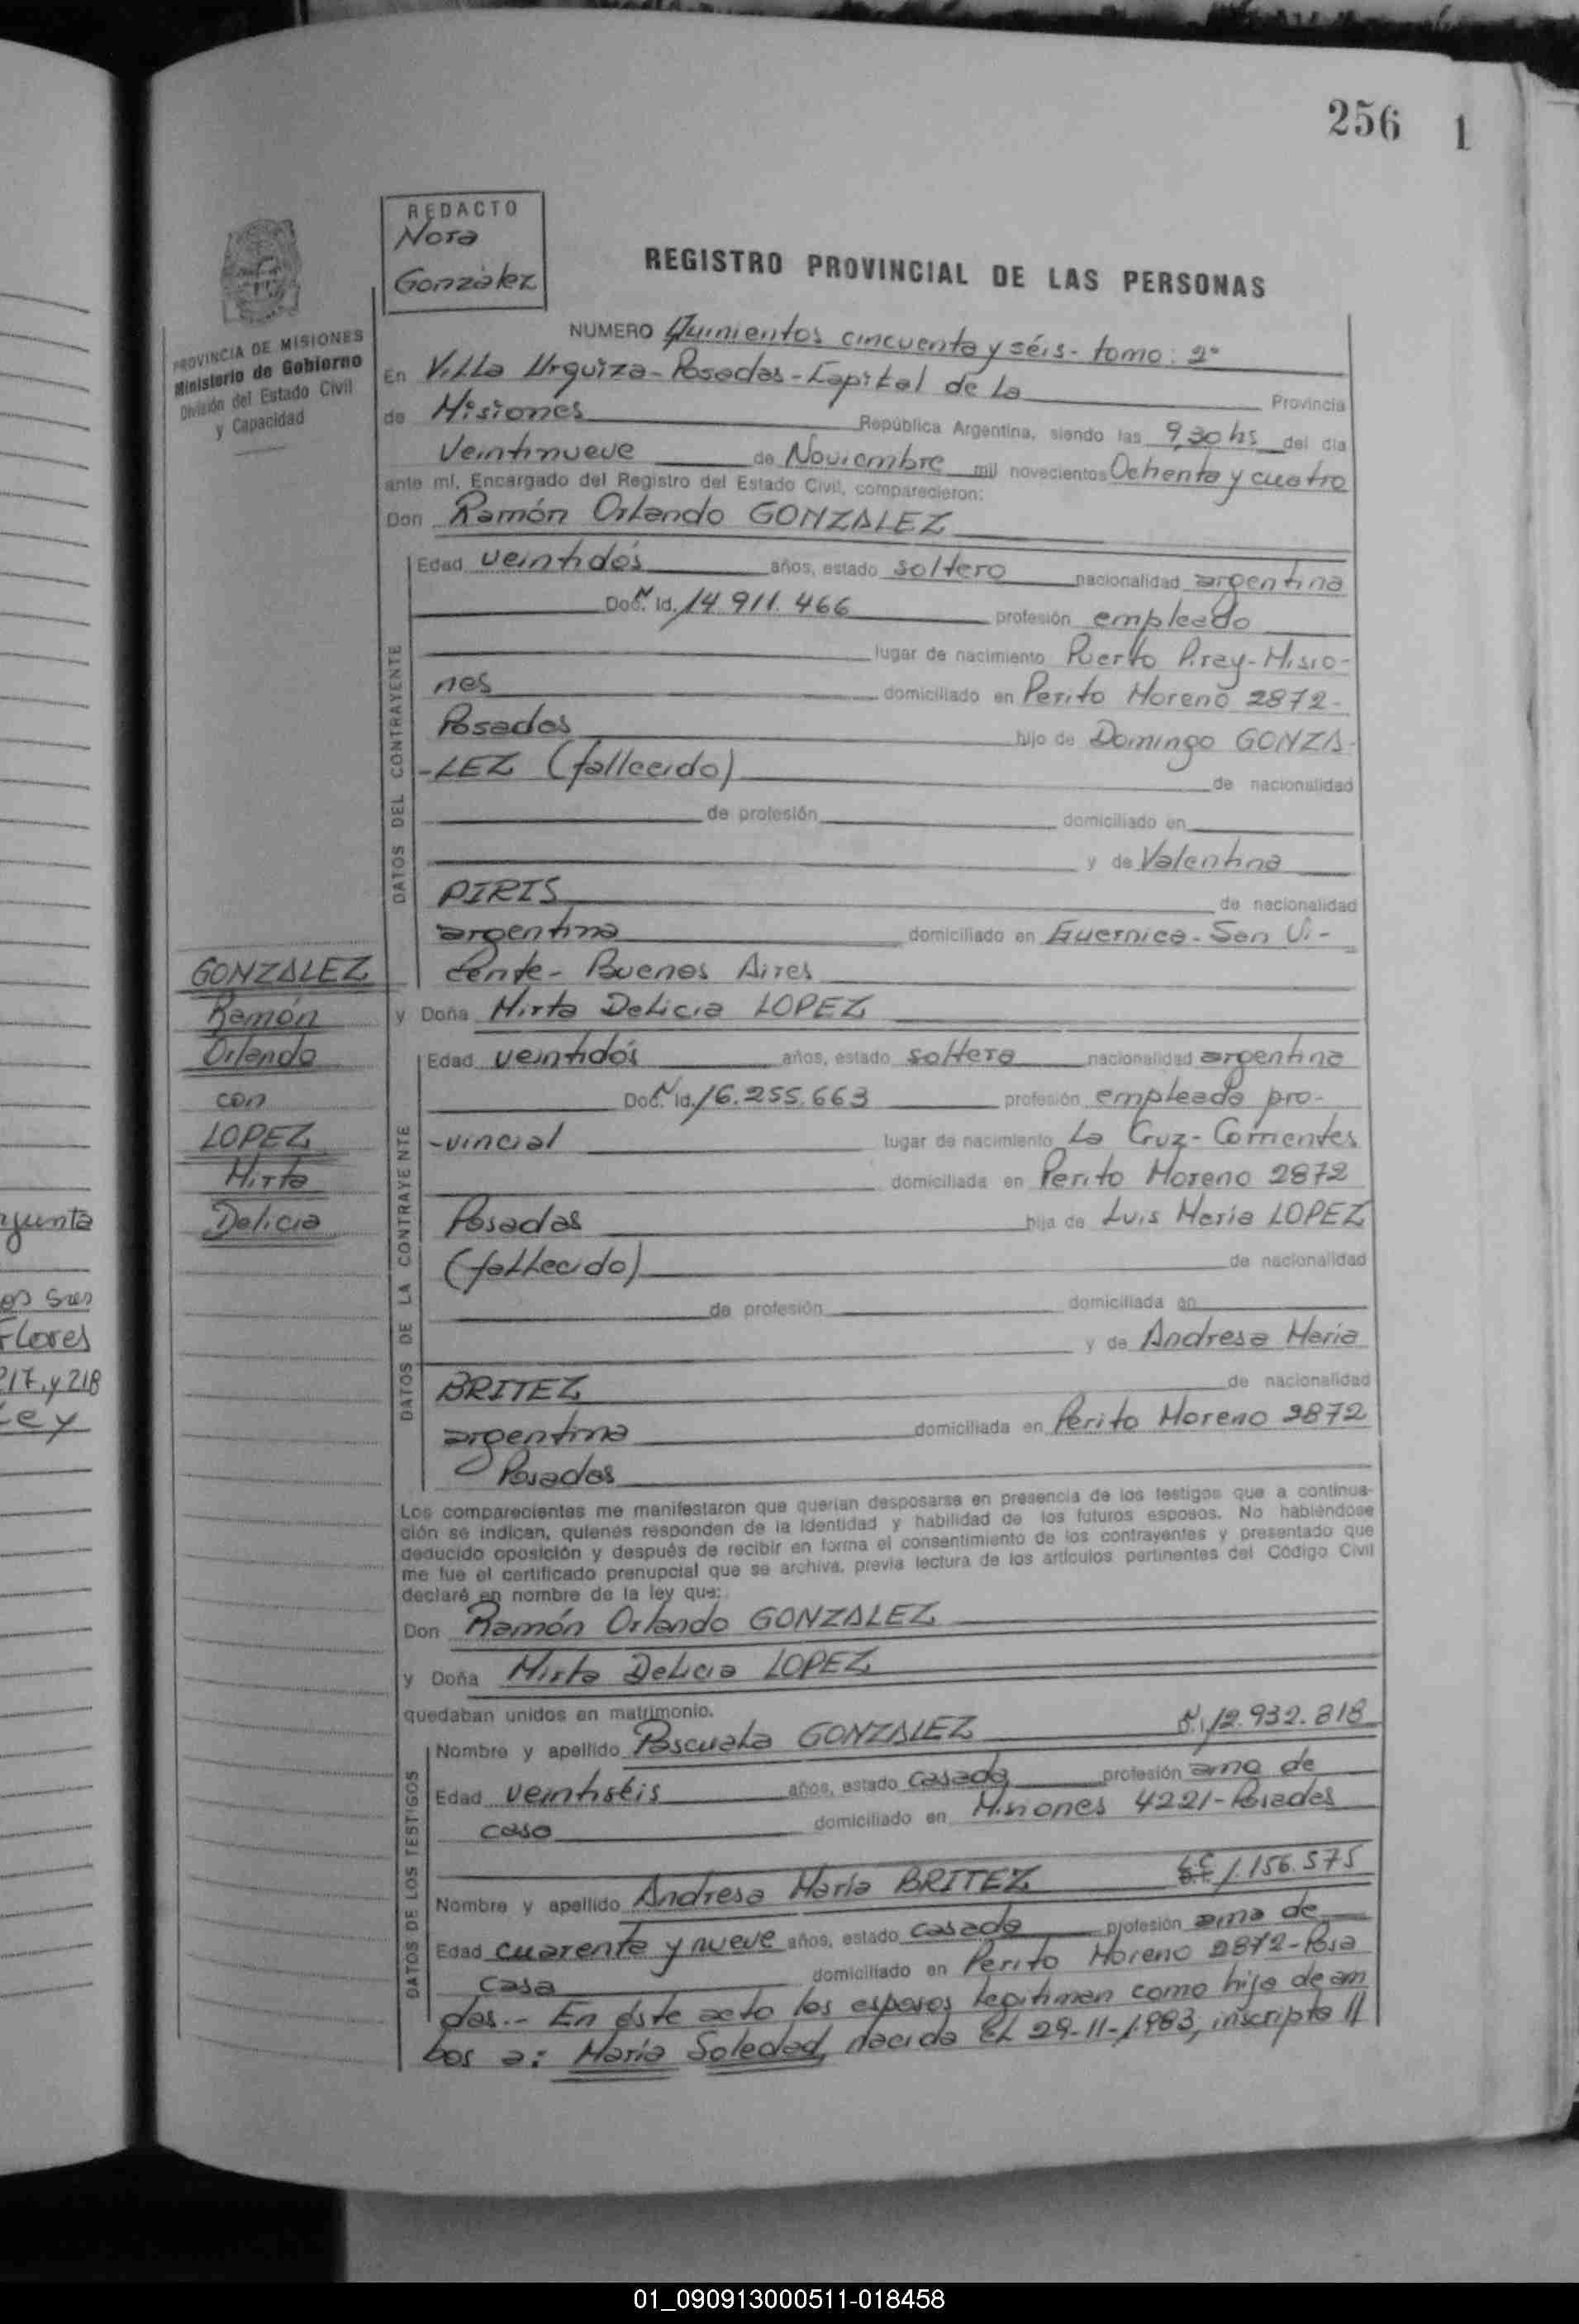 256 1
REDACTO
Nora
González
REGISTRO PROVINCIAL DE LAS PERSONAS
PROVINCIA DE MISIONES
Ministerio de Gobierno
División del Estado Civil
y Capacidad
NUMERO Quinientos cincuenta y séis- tomo: 2°
En Villa Urquiza-Posadas-Capital de La Provincia
de Misiones República Argentina, siendo las 9,30 hs del día
Veintinueve de Noviembre mil novecientos Ochenta y cuatro
ante mí, Encargado del Registro del Estado Civil, comparecieron:
Don Ramón Orlando GONZALEZ
DATOS DEL CONTRAYENTE
Edad veintidós años, estado soltero nacionalidad argentina
Doc. Id. N 14.911.466 profesión empleado
lugar de nacimiento Puerto Piray-Misio-
nes domiciliado en Perito Moreno 2872-
Posadas hijo de Domingo GONZA-
-LEZ (fallecido) de nacionalidad
de profesión domiciliado en
y de Valentina
PIRIS de nacionalidad
argentina domiciliado en Guernica-San Vi-
cente- Buenos Aires
y Doña Mirta Delicia LOPEZ
GONZALEZ
Ramón
Orlando
con
LOPEZ
Mirta
Delicia
DATOS DE LA CONTRAYENTE
Edad veintidós años, estado soltera nacionalidad argentina
Doc. Id. N 16.255.663 profesión empleada pro-
-vincial lugar de nacimiento La Cruz-Corrientes
domiciliada en Perito Moreno 2872
Posadas hija de Luis María LOPEZ
(fallecido) de nacionalidad
de profesión domiciliada en
y de Andresa María
BRITEZ de nacionalidad
argentina domiciliada en Perito Moreno 2872
Posadas
Los comparecientes me manifestaron que querían desposarse en presencia de los testigos que a continua-
ción se indican, quienes responden de la identidad y habilidad de los futuros esposos. No habiéndose
deducido oposición y después de recibir en forma el consentimiento de los contrayentes y presentado que
me fue el certificado prenupcial que se archiva, previa lectura de los artículos pertinentes del Código Civil
declaré en nombre de la ley que:
Don Ramón Orlando GONZALEZ
y Doña Mirta Delicia LOPEZ
quedaban unidos en matrimonio.
DATOS DE LOS TESTIGOS
Nombre y apellido Pascuala GONZALEZ 12.932.818
Edad veintiséis años, estado casada profesión ama de
casa domiciliado en Misiones 4221-Posadas
Nombre y apellido Andresa María BRITEZ L.C 1.156.575
Edad cuarenta y nueve años, estado casada profesión ama de
casa domiciliado en Perito Moreno 2872-Posa
das.- En éste acto los esposos legitiman como hija de am
bos a: María Soledad, nacida El 29-11-1.983, inscripta //
yunta
os Sres
Flores
217. y 218
Ley
01_090913000511-018458